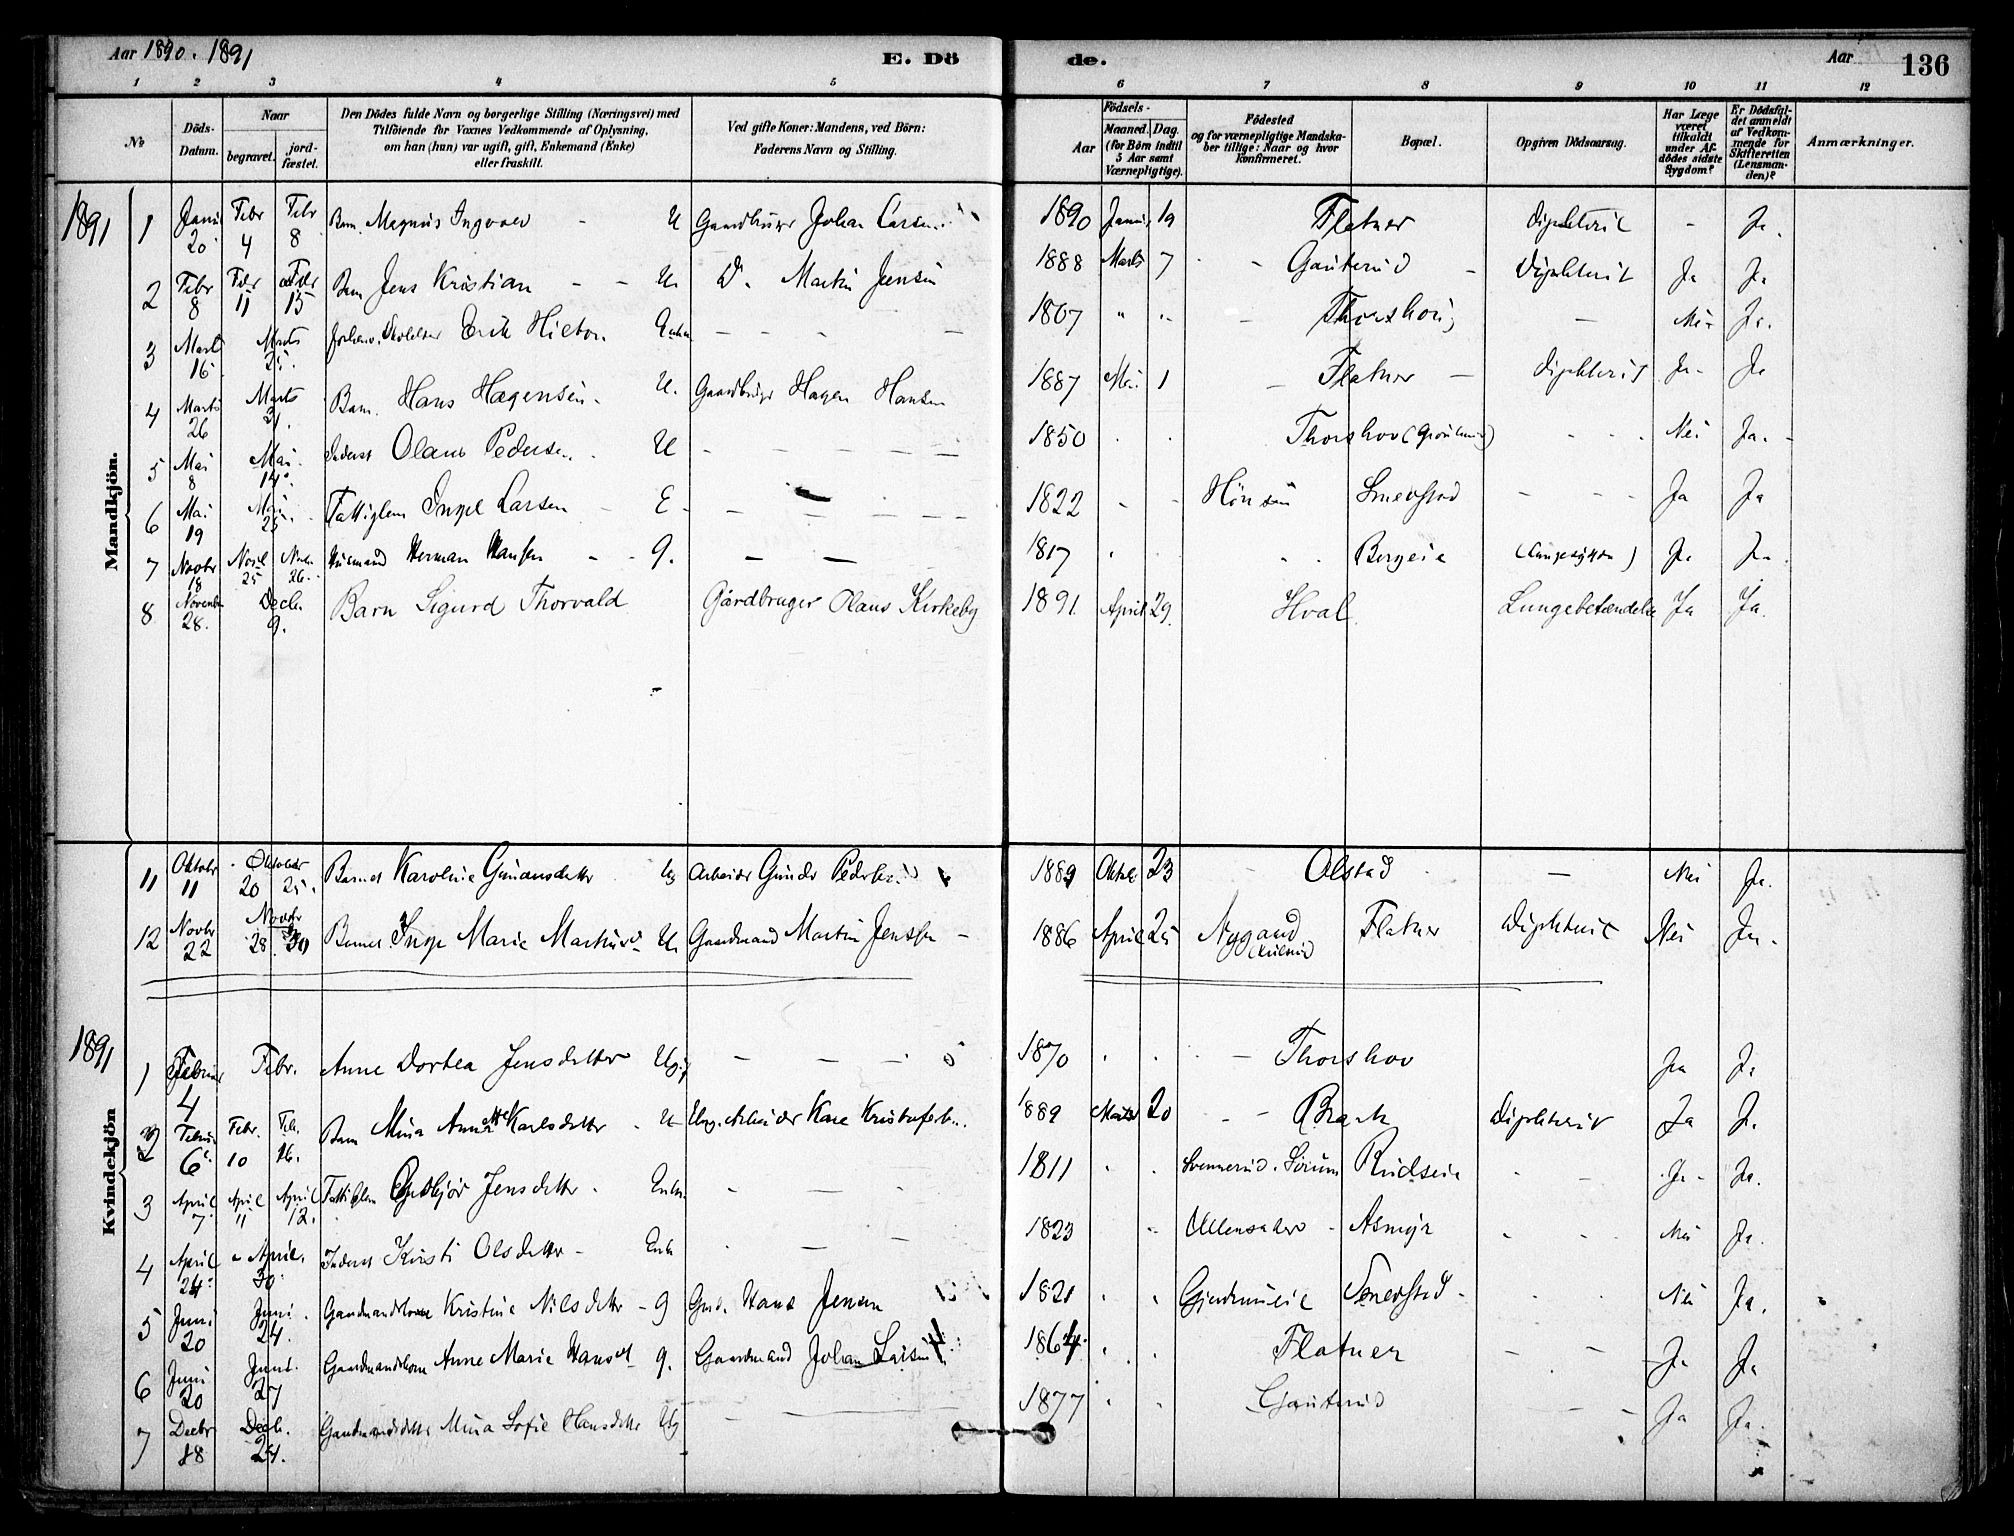 Aar 1890. 1891
E. Dö
de.
Aar
136
1 2 3 4 5 6 7 8 9 10 11 12
No
Döds-Datum.
Naar
begravet. jord-fæstet.
Den Dödes fulde Navn og borgerlige Stilling (Næringsvei) med
Tilföiende for Voxnes Vedkommende af Oplysning,
om han (hun) var ugift, gift, Enkemand (Enke)
eller fraskilt.
Ved gifte Koner: Mandens, ved Börn:
Faderens Navn og Stilling.
Födsels-
Aar
Maaned. Dag.
(for Börn indtil
5 Aar samt
Værnepligtige).
Födested
og for værnepligtige Mandska-
ber tillige: Naar og hvor
Konfirmeret.
Bopæl.
Opgiven Dödsaarsag.
Har Læge
været
tilkaldt
under Af-
dödes sidste
Sygdom?
Er Dödsfal-
det anmeldt
af Vedkom-
mende for
Skifteretten
(Lensman-
den)?
Anmærkninger.
Mandkjön.
1891 1 Janu 20 Febr 4 Febr 8 Barn Magnus Ingvald U Gaardbruger Johan Larsen 1890 Janu 19 Flatner Diphterit - Ja.
2 Febr 8 Febr 11 Febr 15 Barn Jens Kristian U. Do. Martin Jensen 1888 Marts 7 Gauterud Diphterit Ja Ja
3 Marts 16 Marts 21. Erik 1807 Thorshoug Nei Ja.
4 Marts 26 Marts 31. Barn. Hans Hagensen. U. Gaardbruger Hagen Hansen 1887 Mai 1 Flatner Diphterit Ja Ja
5 Mai 8 Mai 14. Inderst Olaus Pedersen. U 1850 Thorshov Nei Ja.
6 Mai 19 Mai 25 Fattiglem Larsen E 1822 Smedstad Ja Ja
7 Novbr 18 Novb 25 Novbr 26. Husmand Herman Hansen g. 1817 Bergeie Ja. Ja
8 Novembr 28. Decb. 9. Barn Sigurd Thorvald Gårdbruger Olaus Kirkeby 1891. April 29. Hval Lungebetændelse Ja Ja.
Kvindekjön
11 Oktobr 11 Oktober 20 25. Barnet Karoline Gunarsdatter Ug Arbeider Gunder Pedersen 1889 Oktbr 23 Olstad Nei Ja.
12 Novbr 22 Novbr 28 30 Barnet Inge Marie U. Gaardmand Martin Jensen 1886 April 25 Nygaard Flatner Diphterit Nei Ja.
1891 1 Februar 4 Febr. Anne Dortea Jensdatter Ugg 1870 Thorshov Ja Ja
2 Februar 6 Febr. 10 Feb. 16. Barn Mina Annette Karlsdatter U Ung. Arbeider Karl Kristofersen. 1889 Marts 20 Braate Diphterit Ja Ja.
3 April 7 April 11 April 12. Fattiglem Jensdatter Enke 1811 Sörum Rudseie Ja Ja.
4 April 24 April. 30 Inderst Kirsti Olsdatter Enke 1823 Ullensaker Asmyr Nei Ja.
5 Juni 20 Juni 24. Gaardmandskone Kristine Nilsdatter g Gmd. Hans Jensen 1821 Smedstad Nei Ja.
6 Juni 20 Juni 27 Gaardmandskone Anne Marie Hansd g. Gaardmand Johan Larsen 1864 Flatner Ja Ja
7 Decbr 18 Decb. 24. Gaardmandsdatter Mina Sofie Hansdatter Ug 1877 Gauterud Ja Ja.